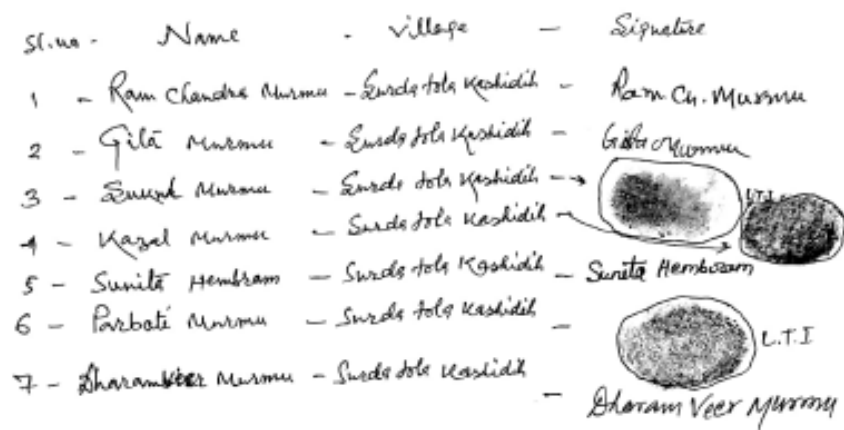 Sl.no - Name - Village - Signature
1 - Ram Chandra Murmu - Surda tola Kashidih - Ram Ch. Murmu
2 - Gita Murmu - Surda tola Kashidih - Gita Murmu
3 - Murmu - Surda tola Kashidih -
L.T.I
4 - Kazal Murmu - Surda tola Kashidih
5 - Sunita Hembram - Surda tola Kashidih - Sunita Hemboram
6 - Parbati Murmu - Surda tola Kashidih -
L.T.I
7 - Dharamveer Murmu - Surda tola Kashidih - Dharam Veer Murmu